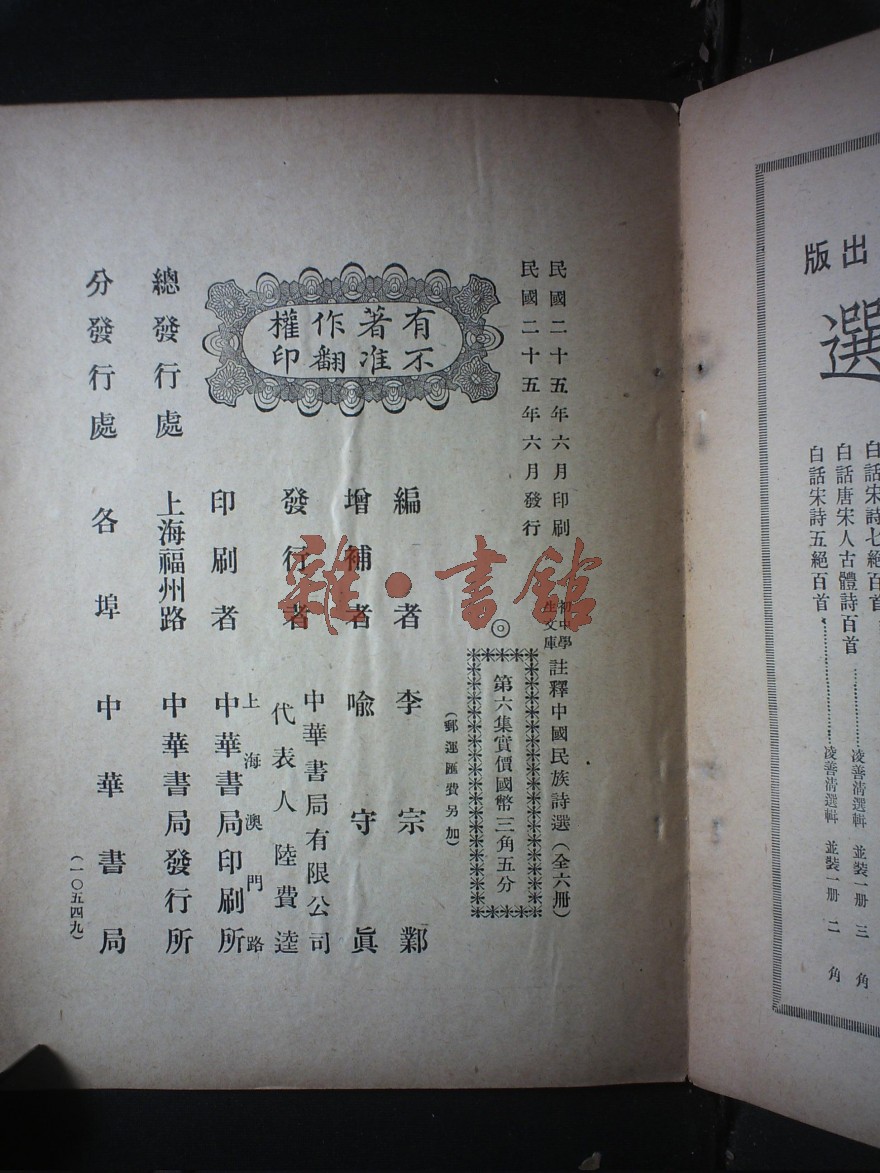 民國二十五年六月印刷
民國二十五年六月發行
初中學生文庫
註釋中國民族詩選(全六册)
◎
第六集實價國幣三角五分
(郵運匯費另加)
有著作權
不准翻印
編者 李宗鄴
增補者 喩守眞
發行者 中華書局有限公司
代表人 陸費逵
印刷者 上海澳門路
中華書局印刷所
總發行處 上海福州路 中華書局發行所
分發行處 各埠中華書局
(一〇五四九)
雜·書館
出版
選
白話宋詩七絕百首
白話唐宋人古體詩百首……凌善清選輯 並裝一册 三角
白話宋詩五絕百首……凌善清選輯 並裝一册 二角